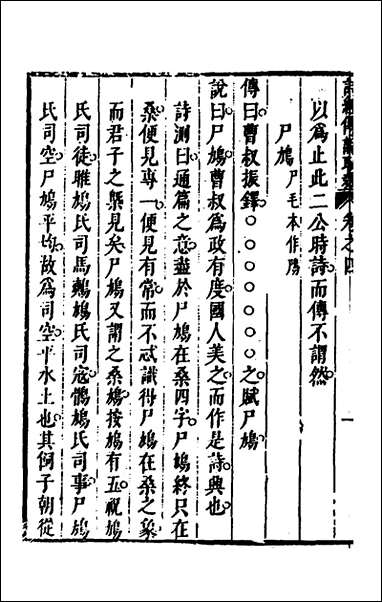 詩經傳說取裁 卷之四 一
以爲止此二公時詩而傳不謂然
尸鳩 尸毛本作鳲
傳曰曹叔振鐸○○○○○○○之賦尸鳩
說曰尸鳩曹叔爲政有度國人美之而作是詩興也
詩測曰通篇之意盡於尸鳩在桑四字尸鳩終只在
桑便見專一便見有常而不忒識得尸鳩在桑之象
而君子之㮣見矣尸鳩又謂之桑鳩按鳩有五祝鳩
氏司徒雎鳩氏司馬鷞鳩氏司寇鶻鳩氏司事尸鳩
氏司空尸鳩平均故爲司空平水土也其伺子朝從